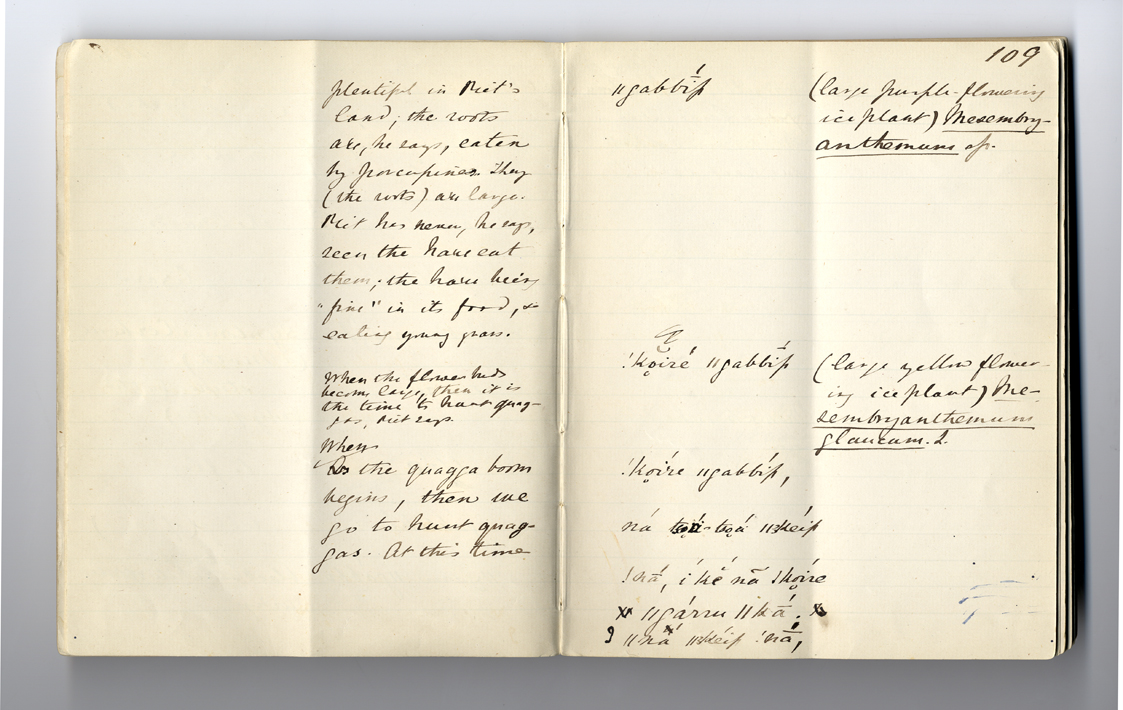 plentiful in Piet's
land; the roots
are, he says, eaten
by porcupines. They
(the roots) are large.
Piet has never, he says,
seen the hare eat
them; the hare being
"fine" in its food, &
eating young grass.
When the flower buds
become large, then it is
the time to hunt quag-
gas, Piet says.
When
the quagga boom
begins, then we
go to hunt quag-
gas. At this time
109
ǁgabbíp
(large purple-flowering
ice plant) Mesembry-
anthemum sp.
!kọiré ǁgabbíp
(large yellow flower-
ing ice plant) Me-
sembryanthemum
glaucum. L.
!kọíre ǁgabbíp,
ná
!ná, í ké nā !kọíre
ǁgárru ǁká.
ǁná !ná,